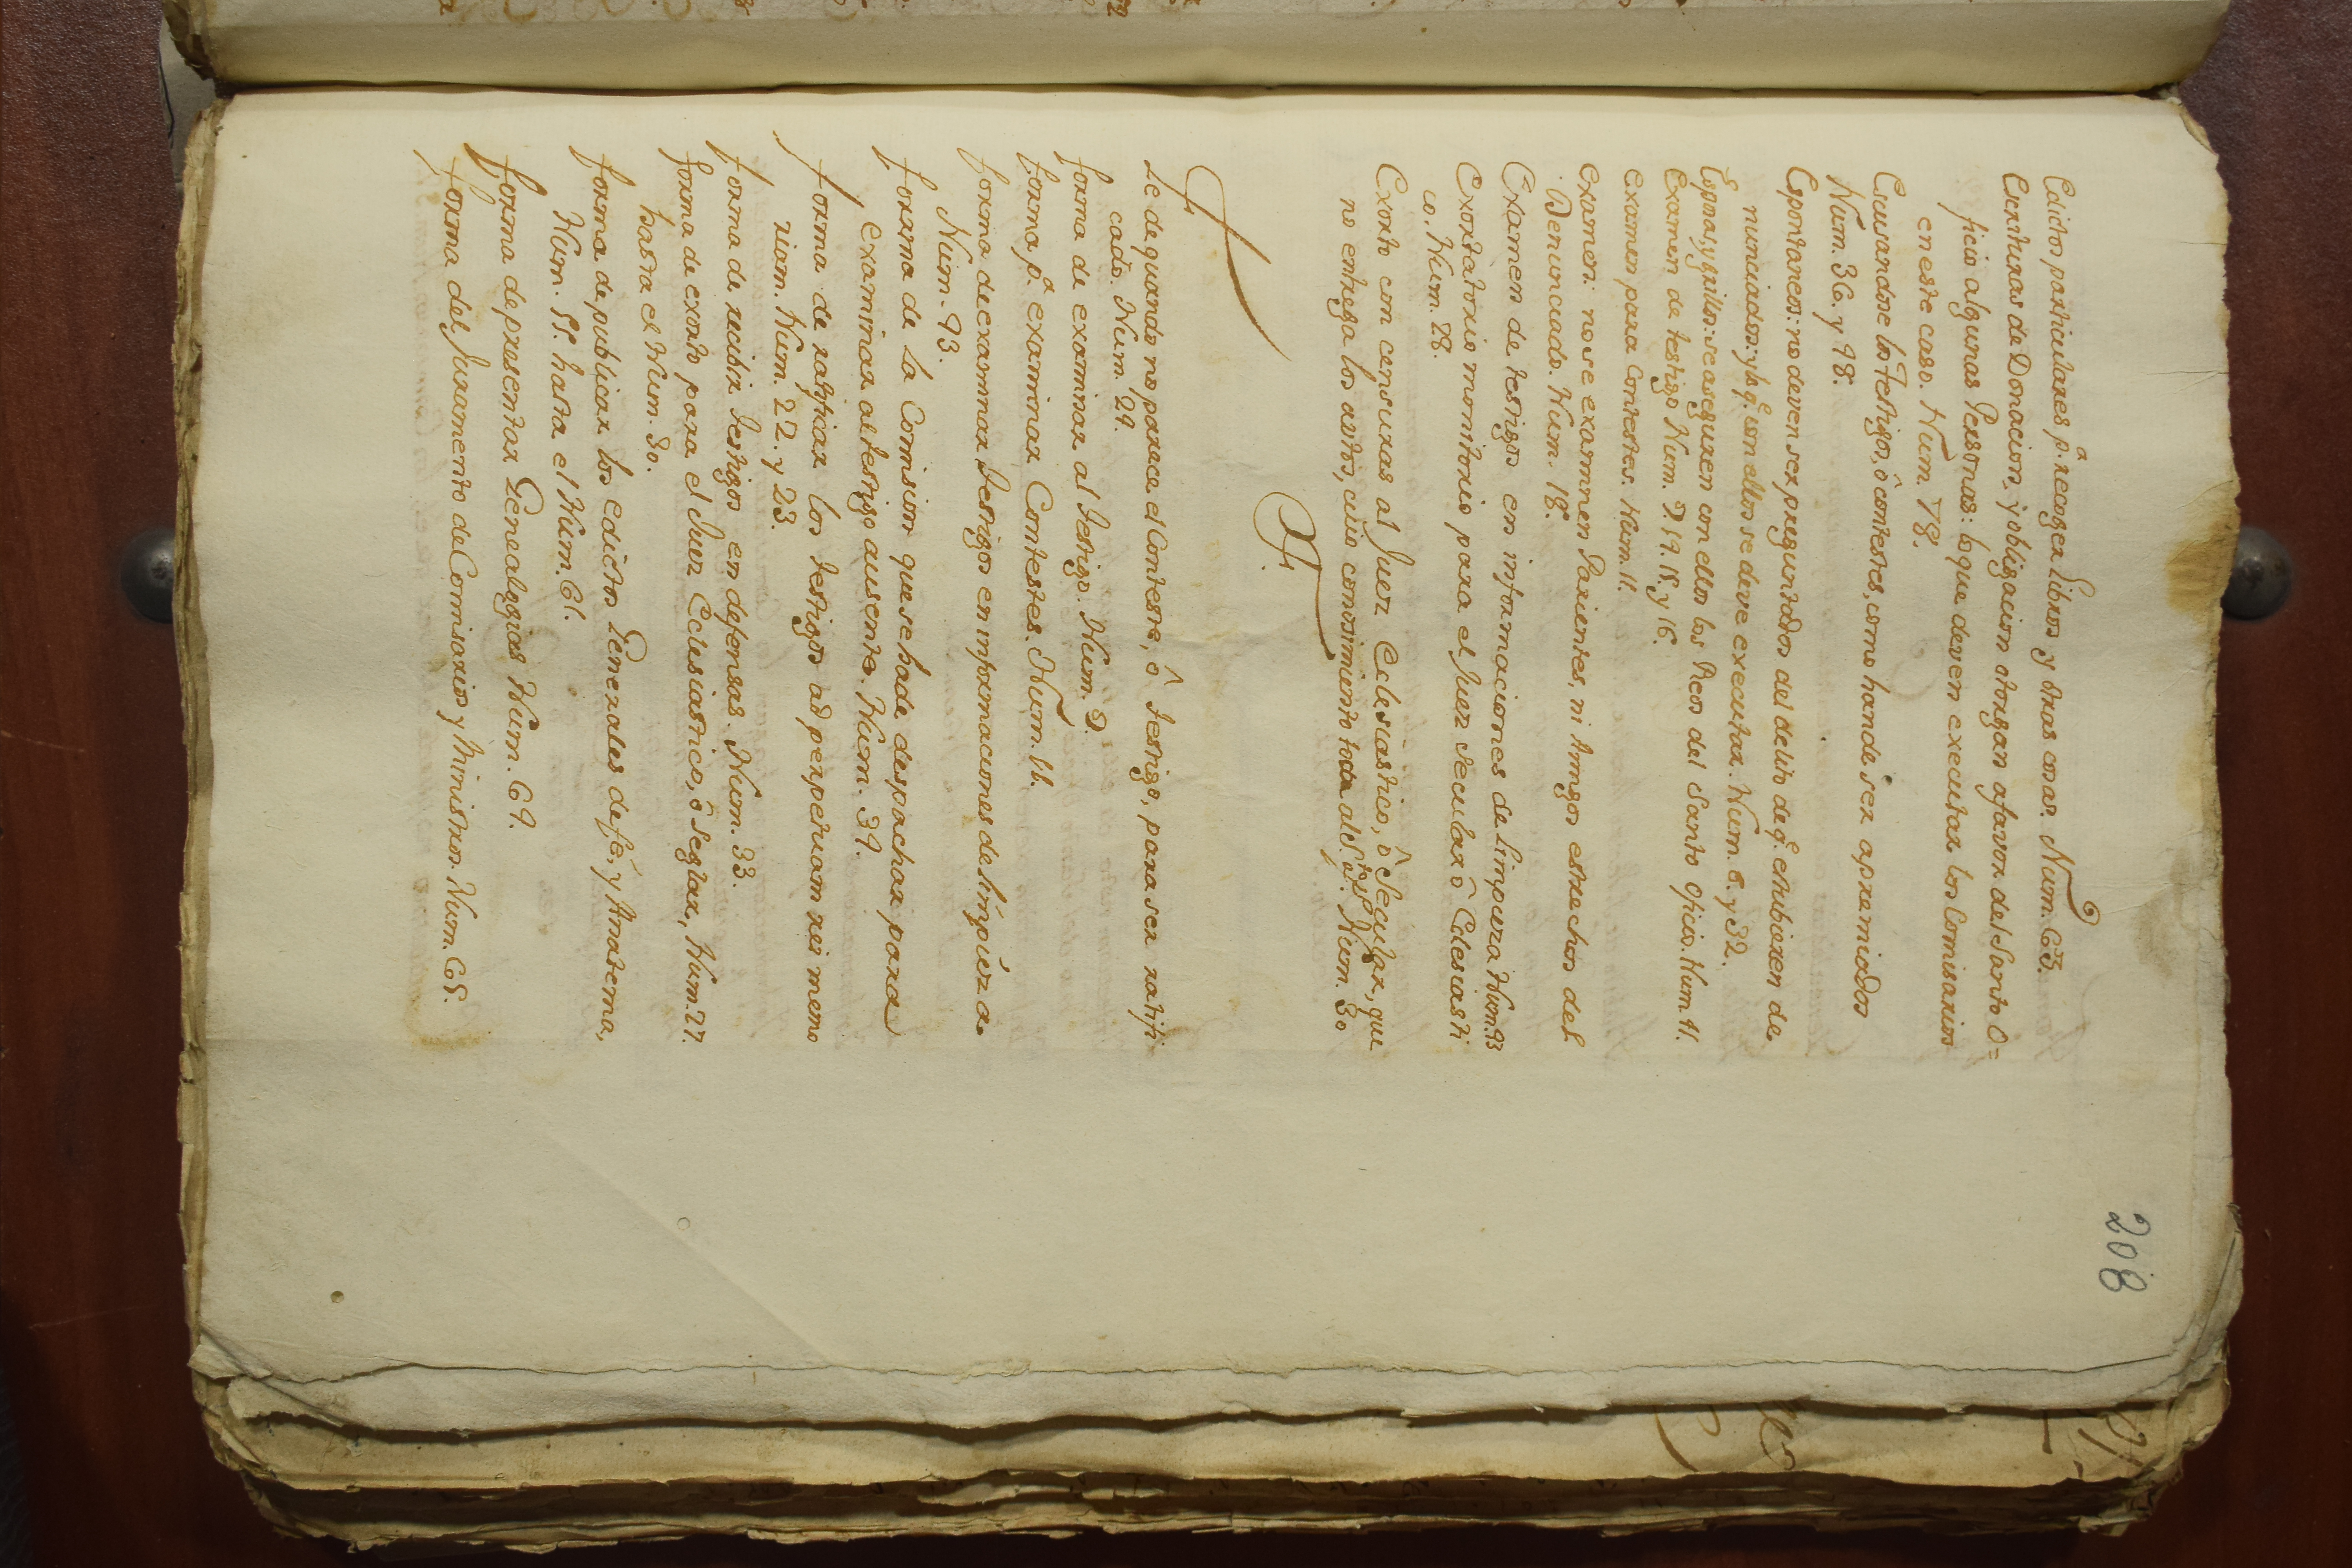 208
Edictos particulares p.a recoger Libros y otras cosas. Num. 63.
Escrituras de Donacion, y obligacion otorgan afavor del Santo O=
ficio algunas Personas: lo que deven executar los Comisarios
en este caso. Num. 78.
Escusandose los Testigos, ô contestes, como hande ser apremiados
Num. 36. y 48.
Espontaneos: no deven ser preguntados del delito de q.e estubieren de
nunciados: y lo q.e con ellos se deve executar. Num. 6. y 32.
Esposas, y grillos: se aseguren con ellos los Reos del Santo Oficio. Num. 41.
Examen de testigo Num. 9. 14. 15. y 16.
Examen para Contestes. Num. 11.
Examen: no se examinen Parientes, ni Amigos estrechos del
Denunciado. Num. 18.
Examen de testigos en informaciones de Limpieza Num. 93
Exortatorio monitorio para el Juez Secular ô Eclesiasti
co. Num. 28.
Exorto con censuras al Juez Eclesiastico, ô Secular, que
no entrega los autos, cuio conosimiento toca al S.to Of.o Num. 30
F.
F
Fe de quando no parece el Conteste, ô Testigo, para ser ratifi
cado. Num. 29.
Forma de examinar al Testigo. Num. 9.
Forma p.a examinar Contestes. Num. 11.
Forma de examinar Testigos en informaciones de limpieza
Num. 93.
Forma de la Comision que se hade despachar para
examinar al testigo ausente. Num. 39.
Forma de ratificar los testigos ad perpetuam rei memo
riam. Num. 22. y 23.
Forma de recibir Testigos en defensas. Num. 33.
Forma de exorto para el Juez Eclesiastico, ô Seglar, Num. 27.
hasta el Num. 30.
Forma de publicar los Edictos Generales de fe, y Anatema,
Num. 55. hasta el Num. 61.
Forma de presentar Genealogias Num. 69.
Forma del Juramento de Comisarios y Ministros. Num. 65.